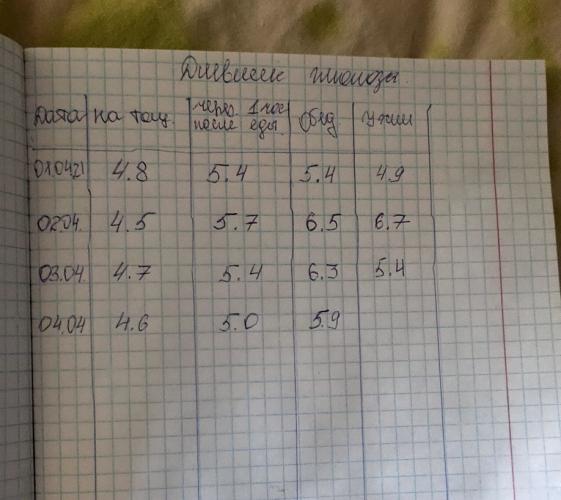 Дневник глюкозы.
Дата на тощ. через 1 час после еды. обед ужин
01.04.21 4.8 5.4 5.4 4.9
02.04. 4.5 5.7 6.5 6.7
03.04. 4.7 5.4 6.3 5.4
04.04 4.6 5.0 5.9